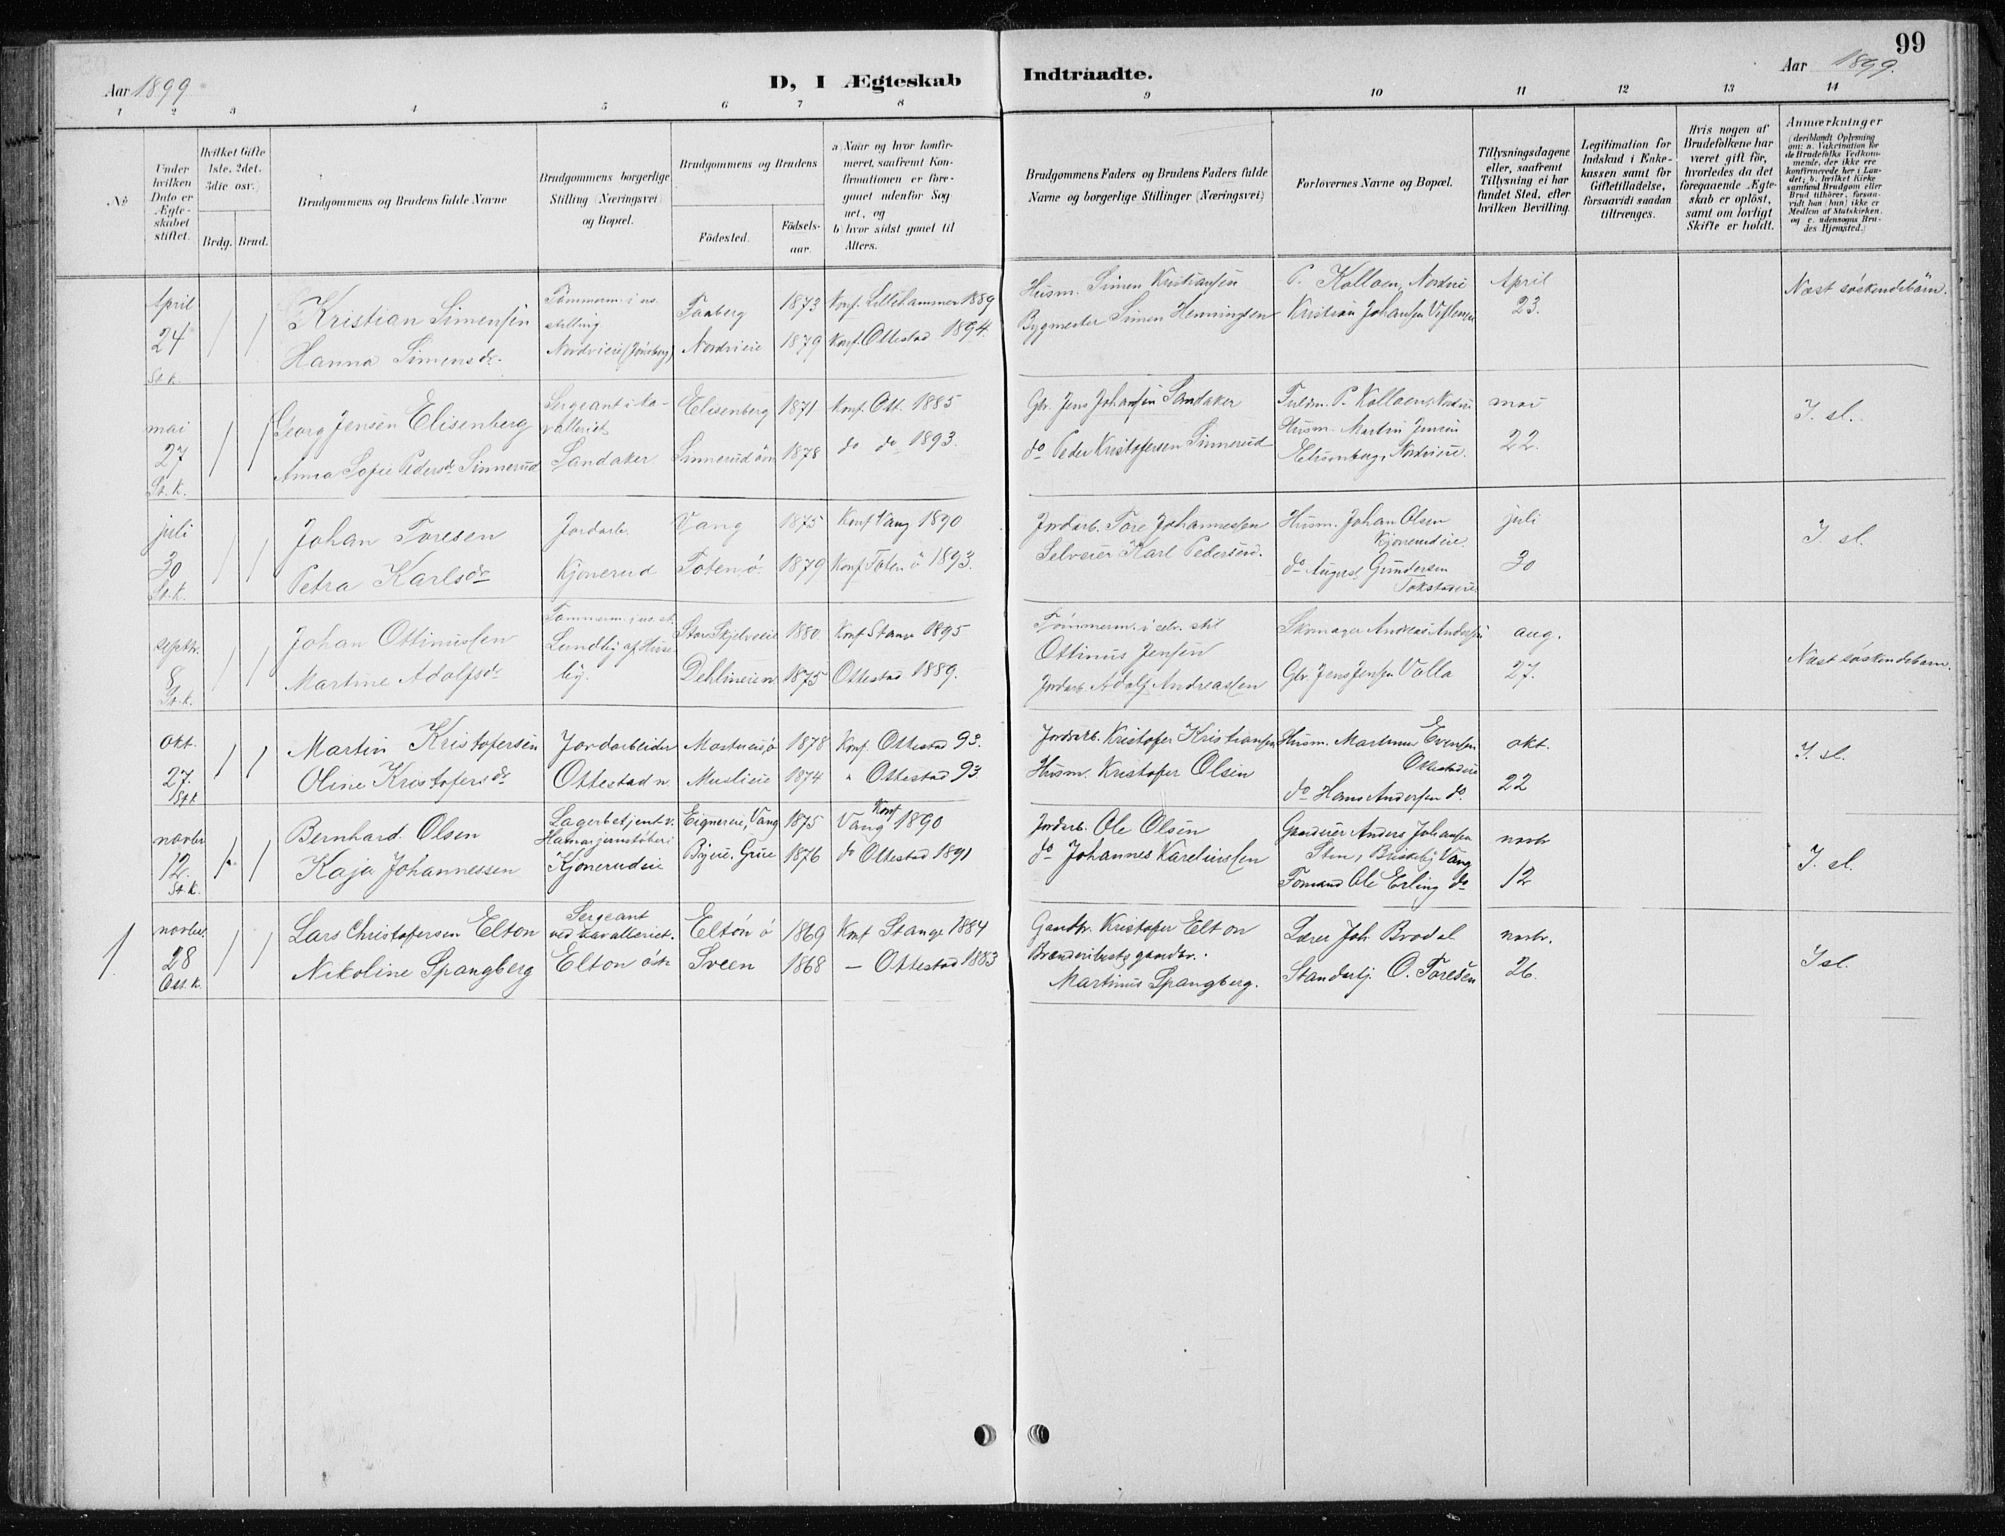 99
Aar 1899 D, I Ægteskab Indtraadte. Aar 1899.
1 2 3 4 5 6 7 8 9 10 11 12 13 14
No
Under hvilken Dato er Ægteskabet stiftet.
Hvilket Gifte 1ste, 2det, 3die osv.
Brdg. Brud.
Brudgommens og Brudens fulde Navne
Brudgommens borgerlige Stilling (Næringsvei) og Bopæl.
Brudgommens og Brudens
Födested.
Födselsaar.
a) Naar og hvor konfirmeret, saafremt Konfirmationen er foregaaet udenfor Sognet, og
b) hvor sidst gaaet til Alters.
Brudgommens Faders og Brudens Faders fulde Navne og borgerlige Stillinger (Næringsvei)
Forlovernes Navne og Bopæl.
Tillysningsdagene eller, saafremt Tillysning ei har fundet Sted, efter hvilken Bevilling.
Legitimation for Indskud i Enkekassen samt for Giftetilladelse, forsaavidt saadan tiltrænges.
Hvis nogen af Brudefolkene har været gift før, hvorledes da det foregaaende Ægteskab er oplöst, samt om lovligt Skifte er holdt.
Anmærkninger
(deriblandt Oplysning om: a. Vakcination for de Brudefolks Vedkommende, der ikke ere konfirmerede her i Landet; b. hvilket Kirkesamfund Brudgom eller Brud tilhörer, forsaavidt han (hun) ikke er Medlem af Statskirken, og c. udensogns Brudes Hjemsted.)
April 24 St. k.
Kristian Simensen
Hanna Simensdr.
Tömmerm. i us. stilling
Nordvieie (Jönsberg)
Faaberg 1873 Konf. Lillehammer 1889
Nordvieie 1879 Konf. Ottestad 1894.
Husm. Simen Kristiansen
Bygmester Simen Henningsen
P. Kollaen, Nordvie
Kristian Johansen
April 23.
Næst söskendebarn.
mai 27 St. k.
Georg Jensen Elisenberg
Anna Sofie Pedersdr. Sinnerud
Sergeant i Kavalleriet
Sandaker
Elisenberg 1871 Konf. Ott. 1885
1878 do do 1893.
Gbr. Jens Johansen Sandaker
do Peder Kristofersen Sinnerud
P. Kollaen
Husm. Martin Jensen
Elisenberg, Nordvieie.
mai 22.
I. sl.
juli 30 St. k.
Johan Toresen
Petra Karlsdr
Jordarb.
Kjonerud
Vang 1875 Konf Vang 1890
Toten ö. 1879 Konf. Toten ö 1893.
Jordarb. Tore Johannessen
Selveier Karl Pedersen.
Husm. Johan Olsen
Kjonerudeie.
do August Gundersen
Tokstadeie
juli 30
I sl.
septbr. 8 St. k.
Johan Ottinussen
Martine Adolfsdr
Tömmerm. i us. st.
Lundby af Huseby.
Store Skjelveeie 1880 Konf Stange 1895
Dehlineien 1875 Ottestad 1889.
Tömmerm. i selv. stil
Ottinus Jensen
Jordarb. Adolf Andreassen
Skomager Andreas Andersen
Gbr. Jens Jensen Valla
aug. 27.
Næst söskendebarn.
okt. 27. St. k
Martin Kristofersen
Oline Kristofersdr
Jordarbeider
Ottestad n.
1878 Konf. Ottestad 93.
Muslieie 1874 " Ottestad 93
Jordarb. Kristofer Kristiansen
Husm. Kristofer Olsen
Husm. Martinus Evensen
Ottestadeie
do Hans Andersen do.
okt. 22
I. sl.
novbr 12. St. k.
Bernhard Olsen
Kaja Johannessen
Lagerbetjent v. Hamar jernstöberi
Kjonerudeie
Eignereie, Vang 1875 Konf Vang 1890
Grue 1876 do Ottestad 1891
Jordarb. Ole Olsen
do Johannes Kareliussen
Gaardeier Anders Johansen
Sten, Briskeby Vang
Formand Ole Erling do
novbr 12
I. sl.
1 novbr. 28 Ott. k.
Lars Christofersen Elton
Nikoline Spangberg
Sergeant ved kavalleriet.
Elton
Elton ö 1869 Konf Stange 1884
Sveen 1868 — Ottestad 1883
Gaardbr. Kristofer Elton
Brænderibest. gaardbr.
Martinus Spangberg.
Lærer Joh. Brodal
Standartj. O. Toresen
novbr. 26.
I sl.